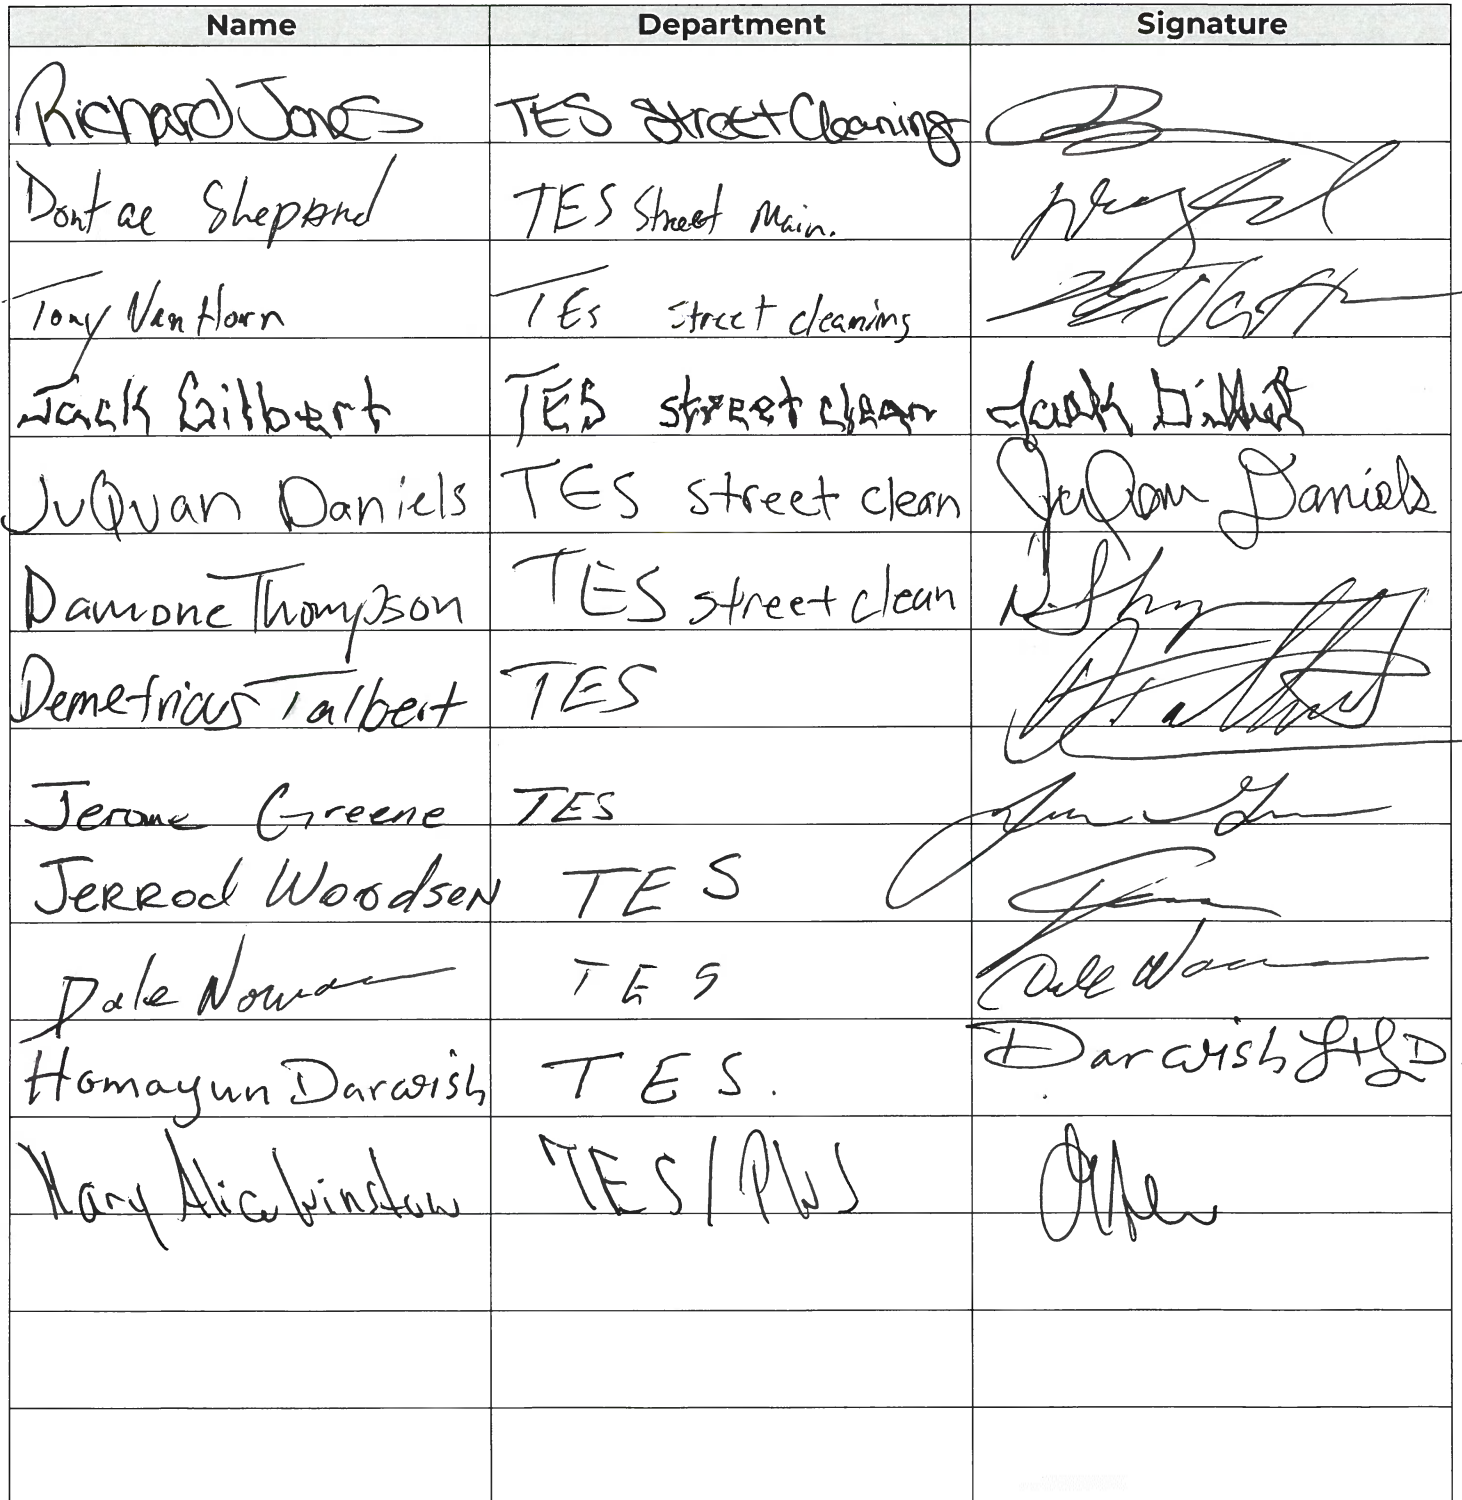 Name Department Signature
Richard Jones TES Street Cleaning
Dontae Sheppard TES Street Main.
Tony Van Horn TES street cleaning
Jack Gilbert TES street clean Jack Gilbert
JuQuan Daniels TES street clean JuQuan Daniels
Damone Thompson TES street clean
Demetricus Talbert TES
Jerome Greene TES
JERROD WOODSEN TES
Dale Nowman TES Dale
Homayun Darwish TES. Darwish
Mary Alice Winstow TES/PWS